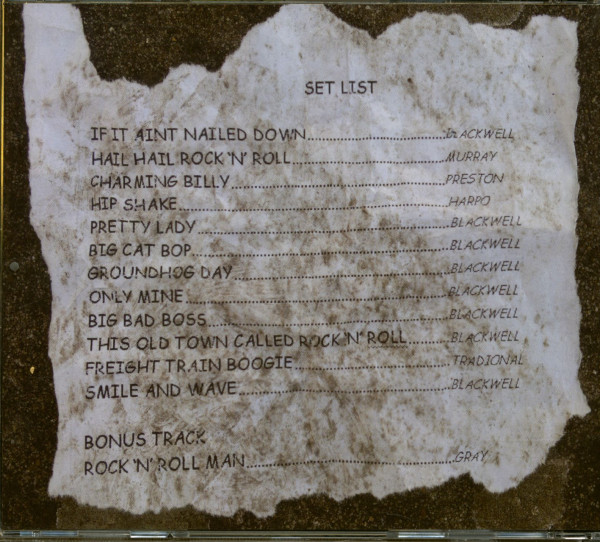 SET LIST
IF IT AINT NAILED DOWN..........BLACKWELL
HAIL HAIL ROCK 'N' ROLL..........MURRAY
CHARMING BILLY..........PRESTON
HIP SHAKE..........HARPO
PRETTY LADY..........BLACKWELL
BIG CAT BOP..........BLACKWELL
GROUNDHOG DAY..........BLACKWELL
ONLY MINE..........BLACKWELL
BIG BAD BOSS..........BLACKWELL
THIS OLD TOWN CALLED ROCK 'N' ROLL..........BLACKWELL
FREIGHT TRAIN BOOGIE..........TRADIONAL
SMILE AND WAVE..........BLACKWELL
BONUS TRACK
ROCK 'N' ROLL MAN..........GRAY